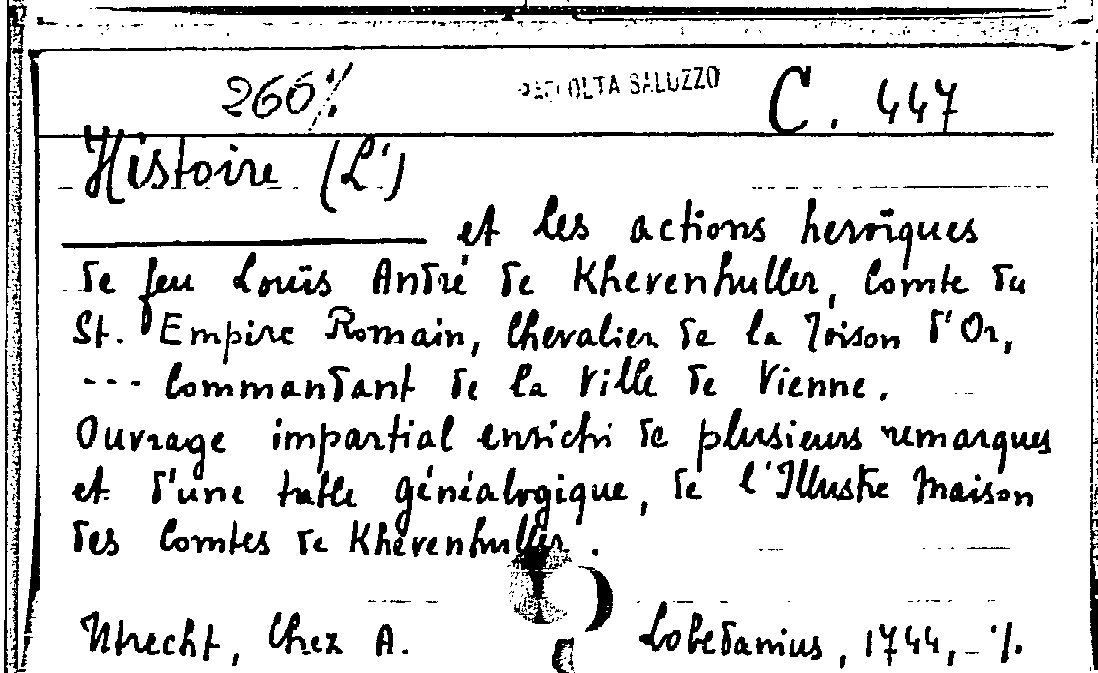 260 ·/. RACCOLTA SALUZZO C. 447
Histoire (L')
et les actions heroïques
de feu Louïs André de Khevenhuller, Comte du
St. Empire Romain, Chevalier de la Toison d'Or,
--- Commandant de la Ville de Vienne.
Ouvrage impartial enrichi de plusieurs remarques
et d'une table généalogique, de l'Illustre Maison
des Comtes de Khevenhuller.
Utrecht, Chez A. Lobedanius, 1744, - ·/.